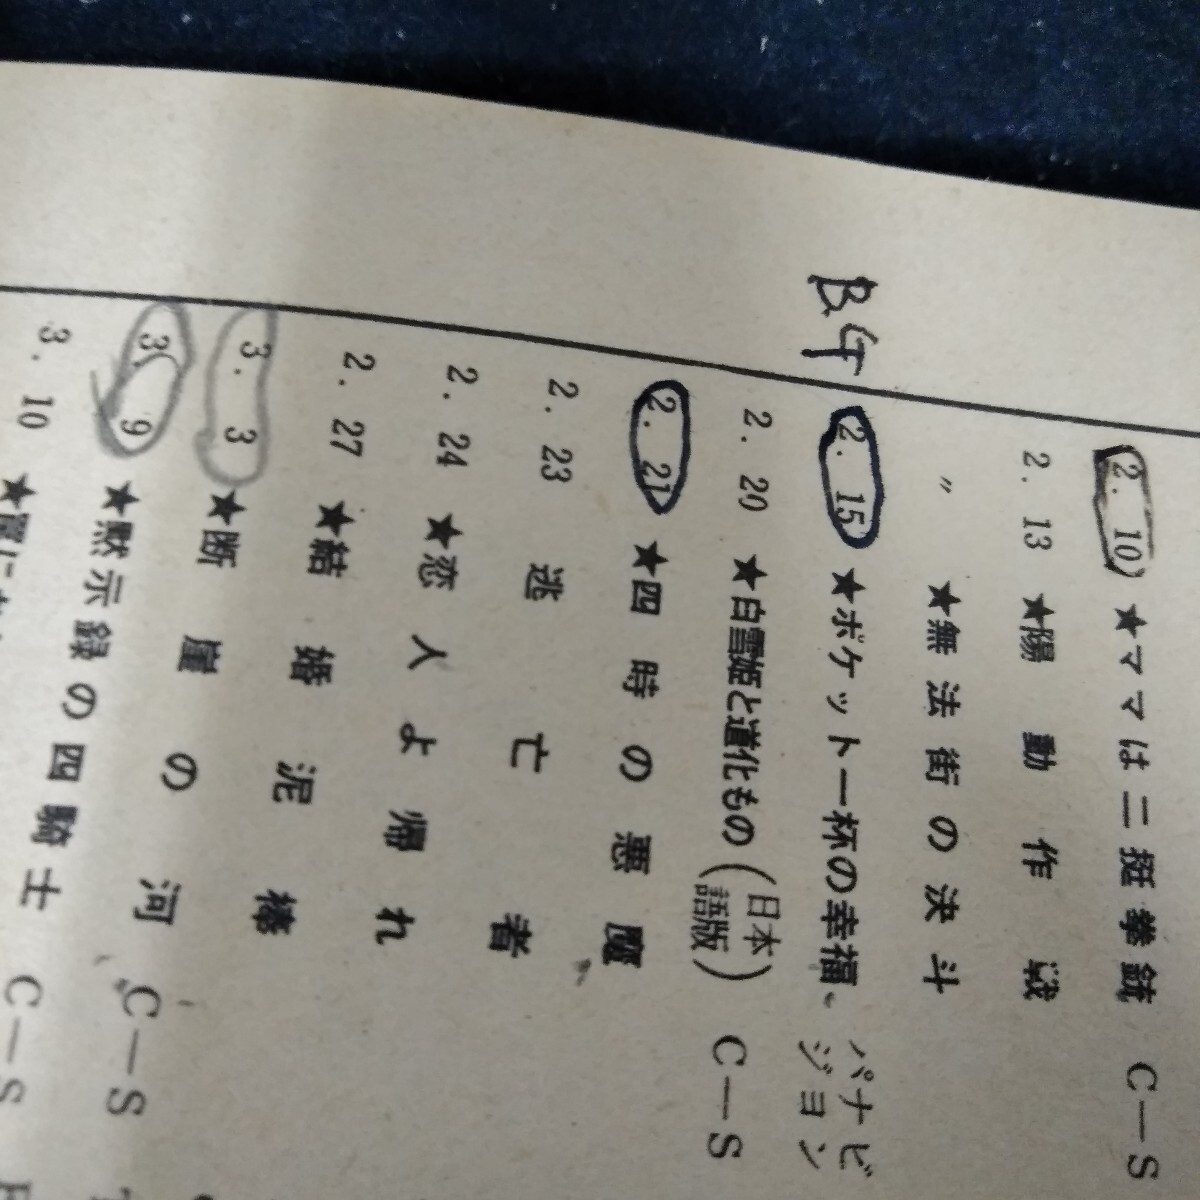 B4
2. 10 ★ママは二挺拳銃 C—S
2. 13 ★陽動作戦
〃 ★無法街の決斗
2. 15 ★ポケット一杯の幸福 パナビジョン
2. 20 ★白雪姫と道化もの(日本語版) C—S
2. 21 ★四時の悪魔
2. 23 逃亡者
2. 24 ★恋人よ帰れ
2. 27 ★結婚泥棒
3. 3 ★断崖の河 C—S
3. 9 ★黙示録の四騎士 C—S
3. 10